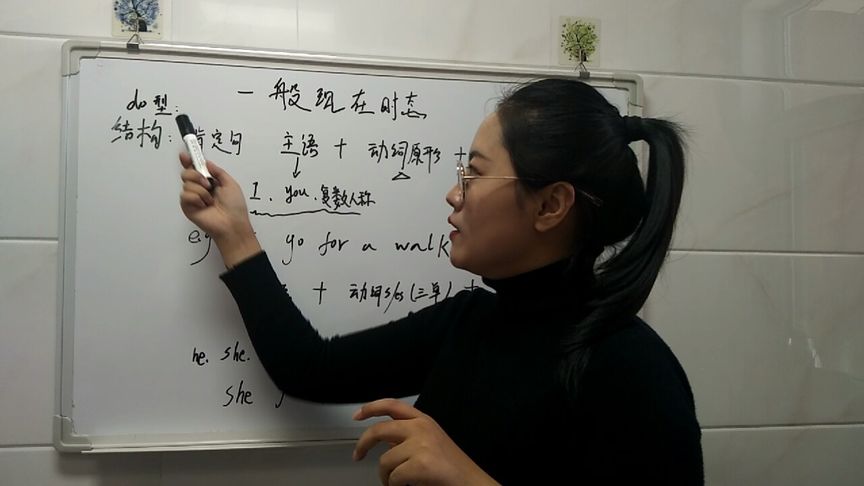 do型: 一般现在时态
结构: 肯定句 主语 + 动词原形 +
I. you. 复数人称
e.g go for a walk
+ 动词s/es(三单) +
he. she.
she